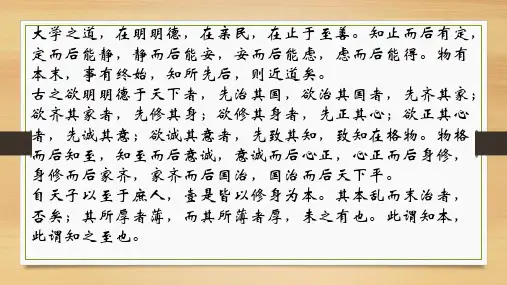 大学之道，在明明德，在亲民，在止于至善。知止而后有定，
定而后能静，静而后能安，安而后能虑，虑而后能得。物有
本末，事有终始，知所先后，则近道矣。
古之欲明明德于天下者，先治其国，欲治其国者，先齐其家；
欲齐其家者，先修其身；欲修其身者，先正其心；欲正其心
者，先诚其意；欲诚其意者，先致其知，致知在格物。物格
而后知至，知至而后意诚，意诚而后心正，心正而后身修，
身修而后家齐，家齐而后国治，国治而后天下平。
自天子以至于庶人，壹是皆以修身为本。其本乱而末治者，
否矣；其所厚者薄，而其所薄者厚，未之有也。此谓知本，
此谓知之至也。